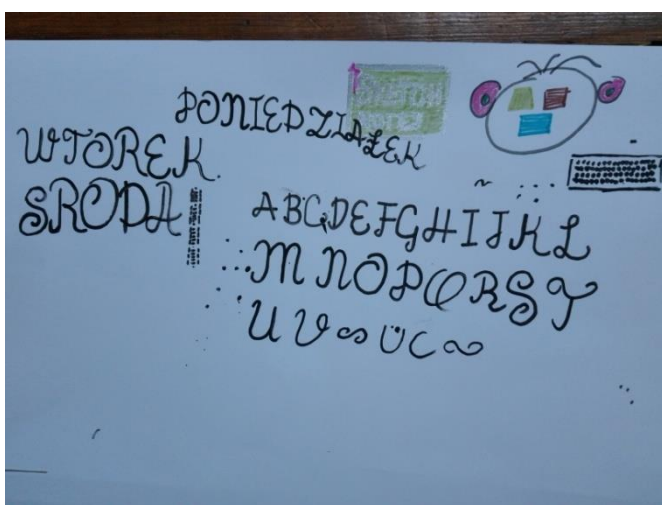 PONIEDZIAŁEK
WTOREK
SRODA
ABCDEFGHIJKL
MNOPQRST
UV